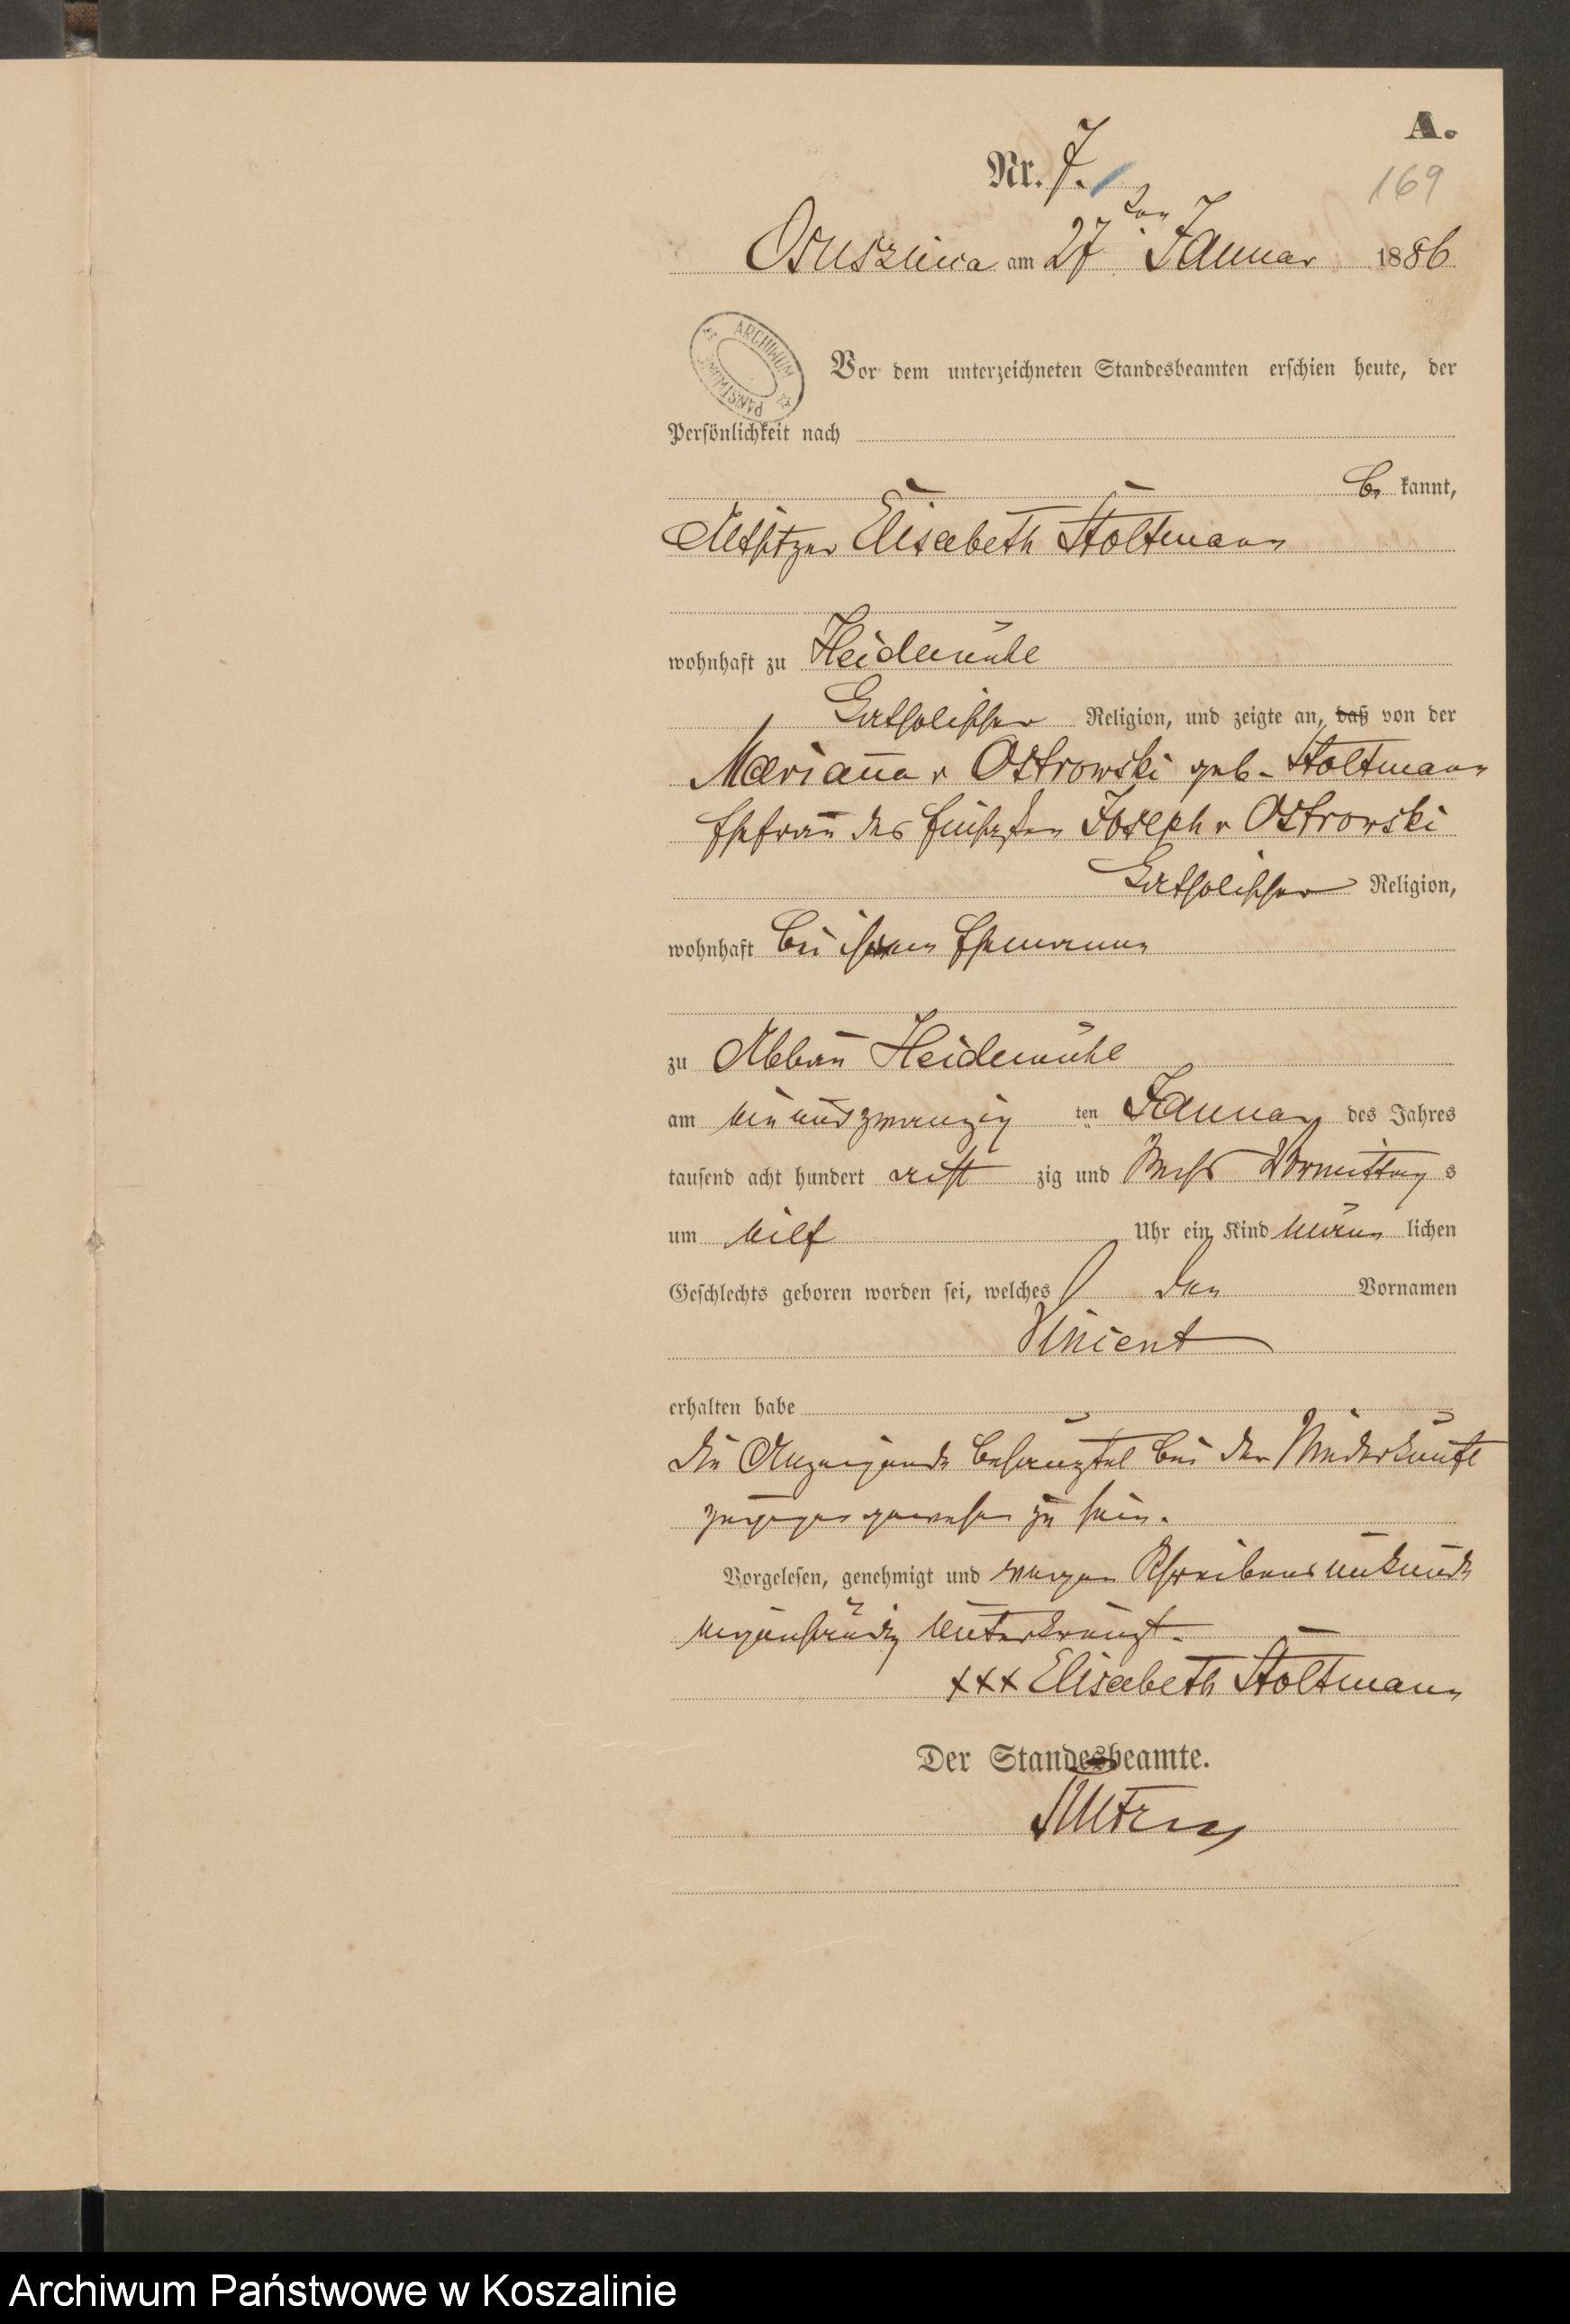 A.
Nr. 7.
169
Osusznica am 27ten Januar 1886
ARCHIWUM PAŃSTWOWE
Vor dem unterzeichneten Standesbeamten erschien heute, der
Persönlichkeit nach
be kannt,
Altsitzer Elisabeth Stoltmann
wohnhaft zu Heidemühl
katholischer Religion, und zeigte an, daß von der
Marianna v Ostrowski geb. Stoltmann
Ehefrau des Einsaßen Joseph v Ostrowski
katholischer Religion,
wohnhaft bei ihrem Ehemann
zu Abbau Heidemühl
am einundzwanzig ten Januar des Jahres
tausend acht hundert acht zig und sechs Vormittag s
um elf Uhr ein Kind männ lichen
Geschlechts geboren worden sei, welches den Vornamen
Vincent
erhalten habe
die Anzeigende behauptet bei der Niederkunft
zugegen gewesen zu sein.
Vorgelesen, genehmigt und wegen Schreibensunkunde
eigenhändig unterkreuzt.
xxx Elisabeth Stoltmann
Der Standesbeamte.
Archiwum Państwowe w Koszalinie